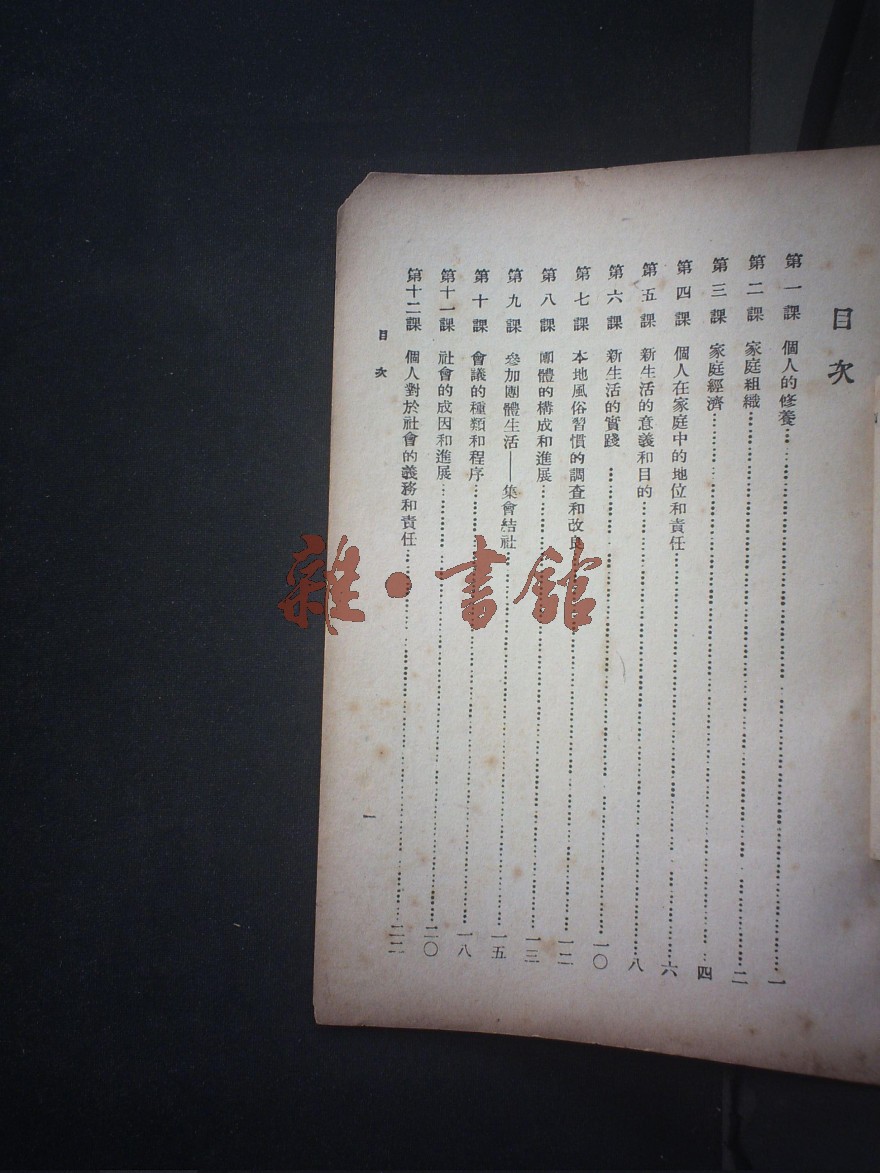 目次
第一課 個人的修養…………一
第二課 家庭組織…………二
第三課 家庭經濟…………四
第四課 個人在家庭中的地位和責任…………六
第五課 新生活的意義和目的…………八
第六課 新生活的實踐…………一〇
第七課 本地風俗習慣的調查和改良…………一二
第八課 團體的構成和進展…………一三
第九課 參加團體生活——集會結社…………一五
第十課 會議的種類和程序…………一八
第十一課 社會的成因和進展…………二〇
第十二課 個人對於社會的義務和責任…………二二
目次
一
雜·書館